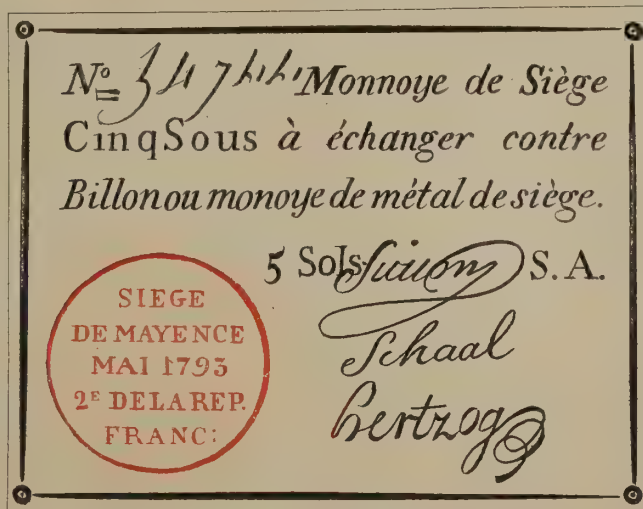 Nº 34744 Monnoye de Siège
Cinq Sous à échanger contre
Billon ou monoye de métal de siège.
5 Sols S. A.
Schaal
hertzog
SIEGE
DE MAYENCE
MAI 1793
2ᴱ DE LA REP.
FRANC: